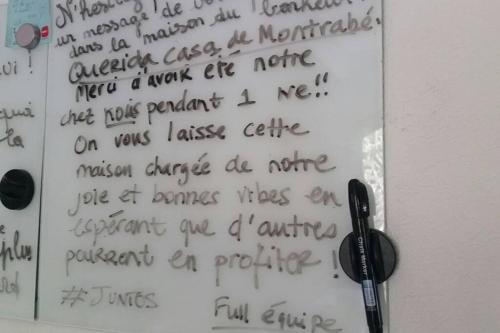 N'hesi
un message! de
dans la maison du bonheur
Querida casa de Montrabé.
Merci d'avoir été notre
chez nous pendant 1 we!!
On vous laisse cette
maison chargée de notre
joie et bonnes vibes en
espérant que d'autres
pourront en profiter !
#JUNTES
Full équipe
ui !
qui
la
plus